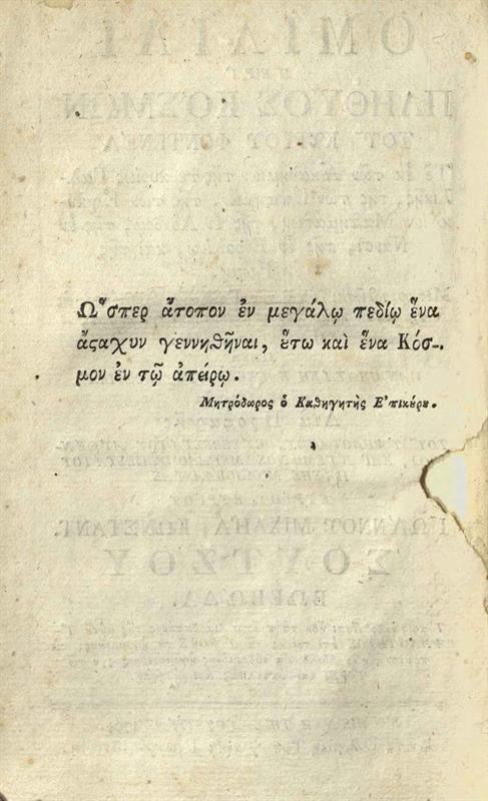 Ὥσπερ ἄτοπον ἐν μεγάλῳ πεδίῳ ἕνα
ἄϛαχυν γεννηθῆναι, ὅτω καὶ ἕνα Κόσ-
μον ἐν τῷ ἀπείρῳ.
Μητρόδωρος ὁ Καθηγητὴς Ἐπικύρȣ.